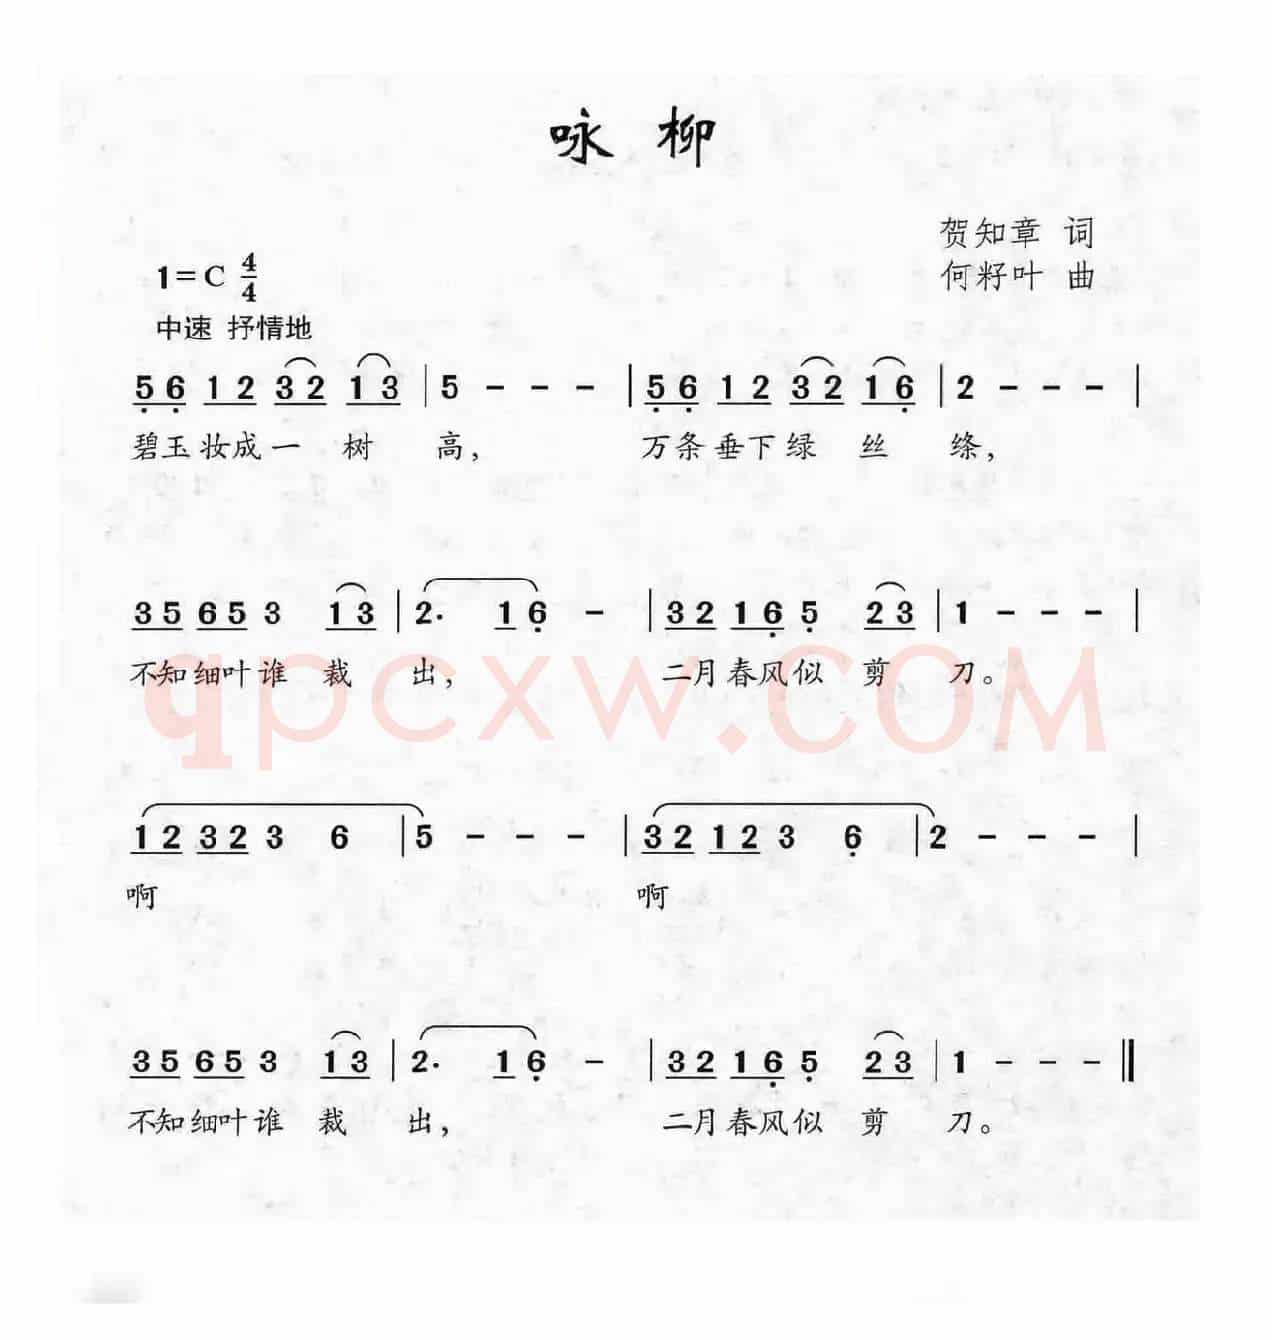 咏 柳
贺知章 词
1=C 4/4
何籽叶 曲
中速 抒情地
5̣ 6̣ 1 2 3 2 1 3 | 5 - - - | 5̣ 6̣ 1 2 3 2 1 6̣ | 2 - - - |
碧玉妆成一 树 高， 万条垂下绿 丝 绦，
3 5 6 5 3 1 3 | 2. 1 6̣ - | 3 2 1 6̣ 5̣ 2 3 | 1 - - - |
不知细叶谁 裁 出， 二月春风似 剪 刀。
qpcxw.COM
1 2 3 2 3 6 | 5 - - - | 3 2 1 2 3 6̣ | 2 - - - |
啊 啊
3 5 6 5 3 1 3 | 2. 1 6̣ - | 3 2 1 6̣ 5̣ 2 3 | 1 - - - ‖
不知细叶谁 裁 出， 二月春风似 剪 刀。